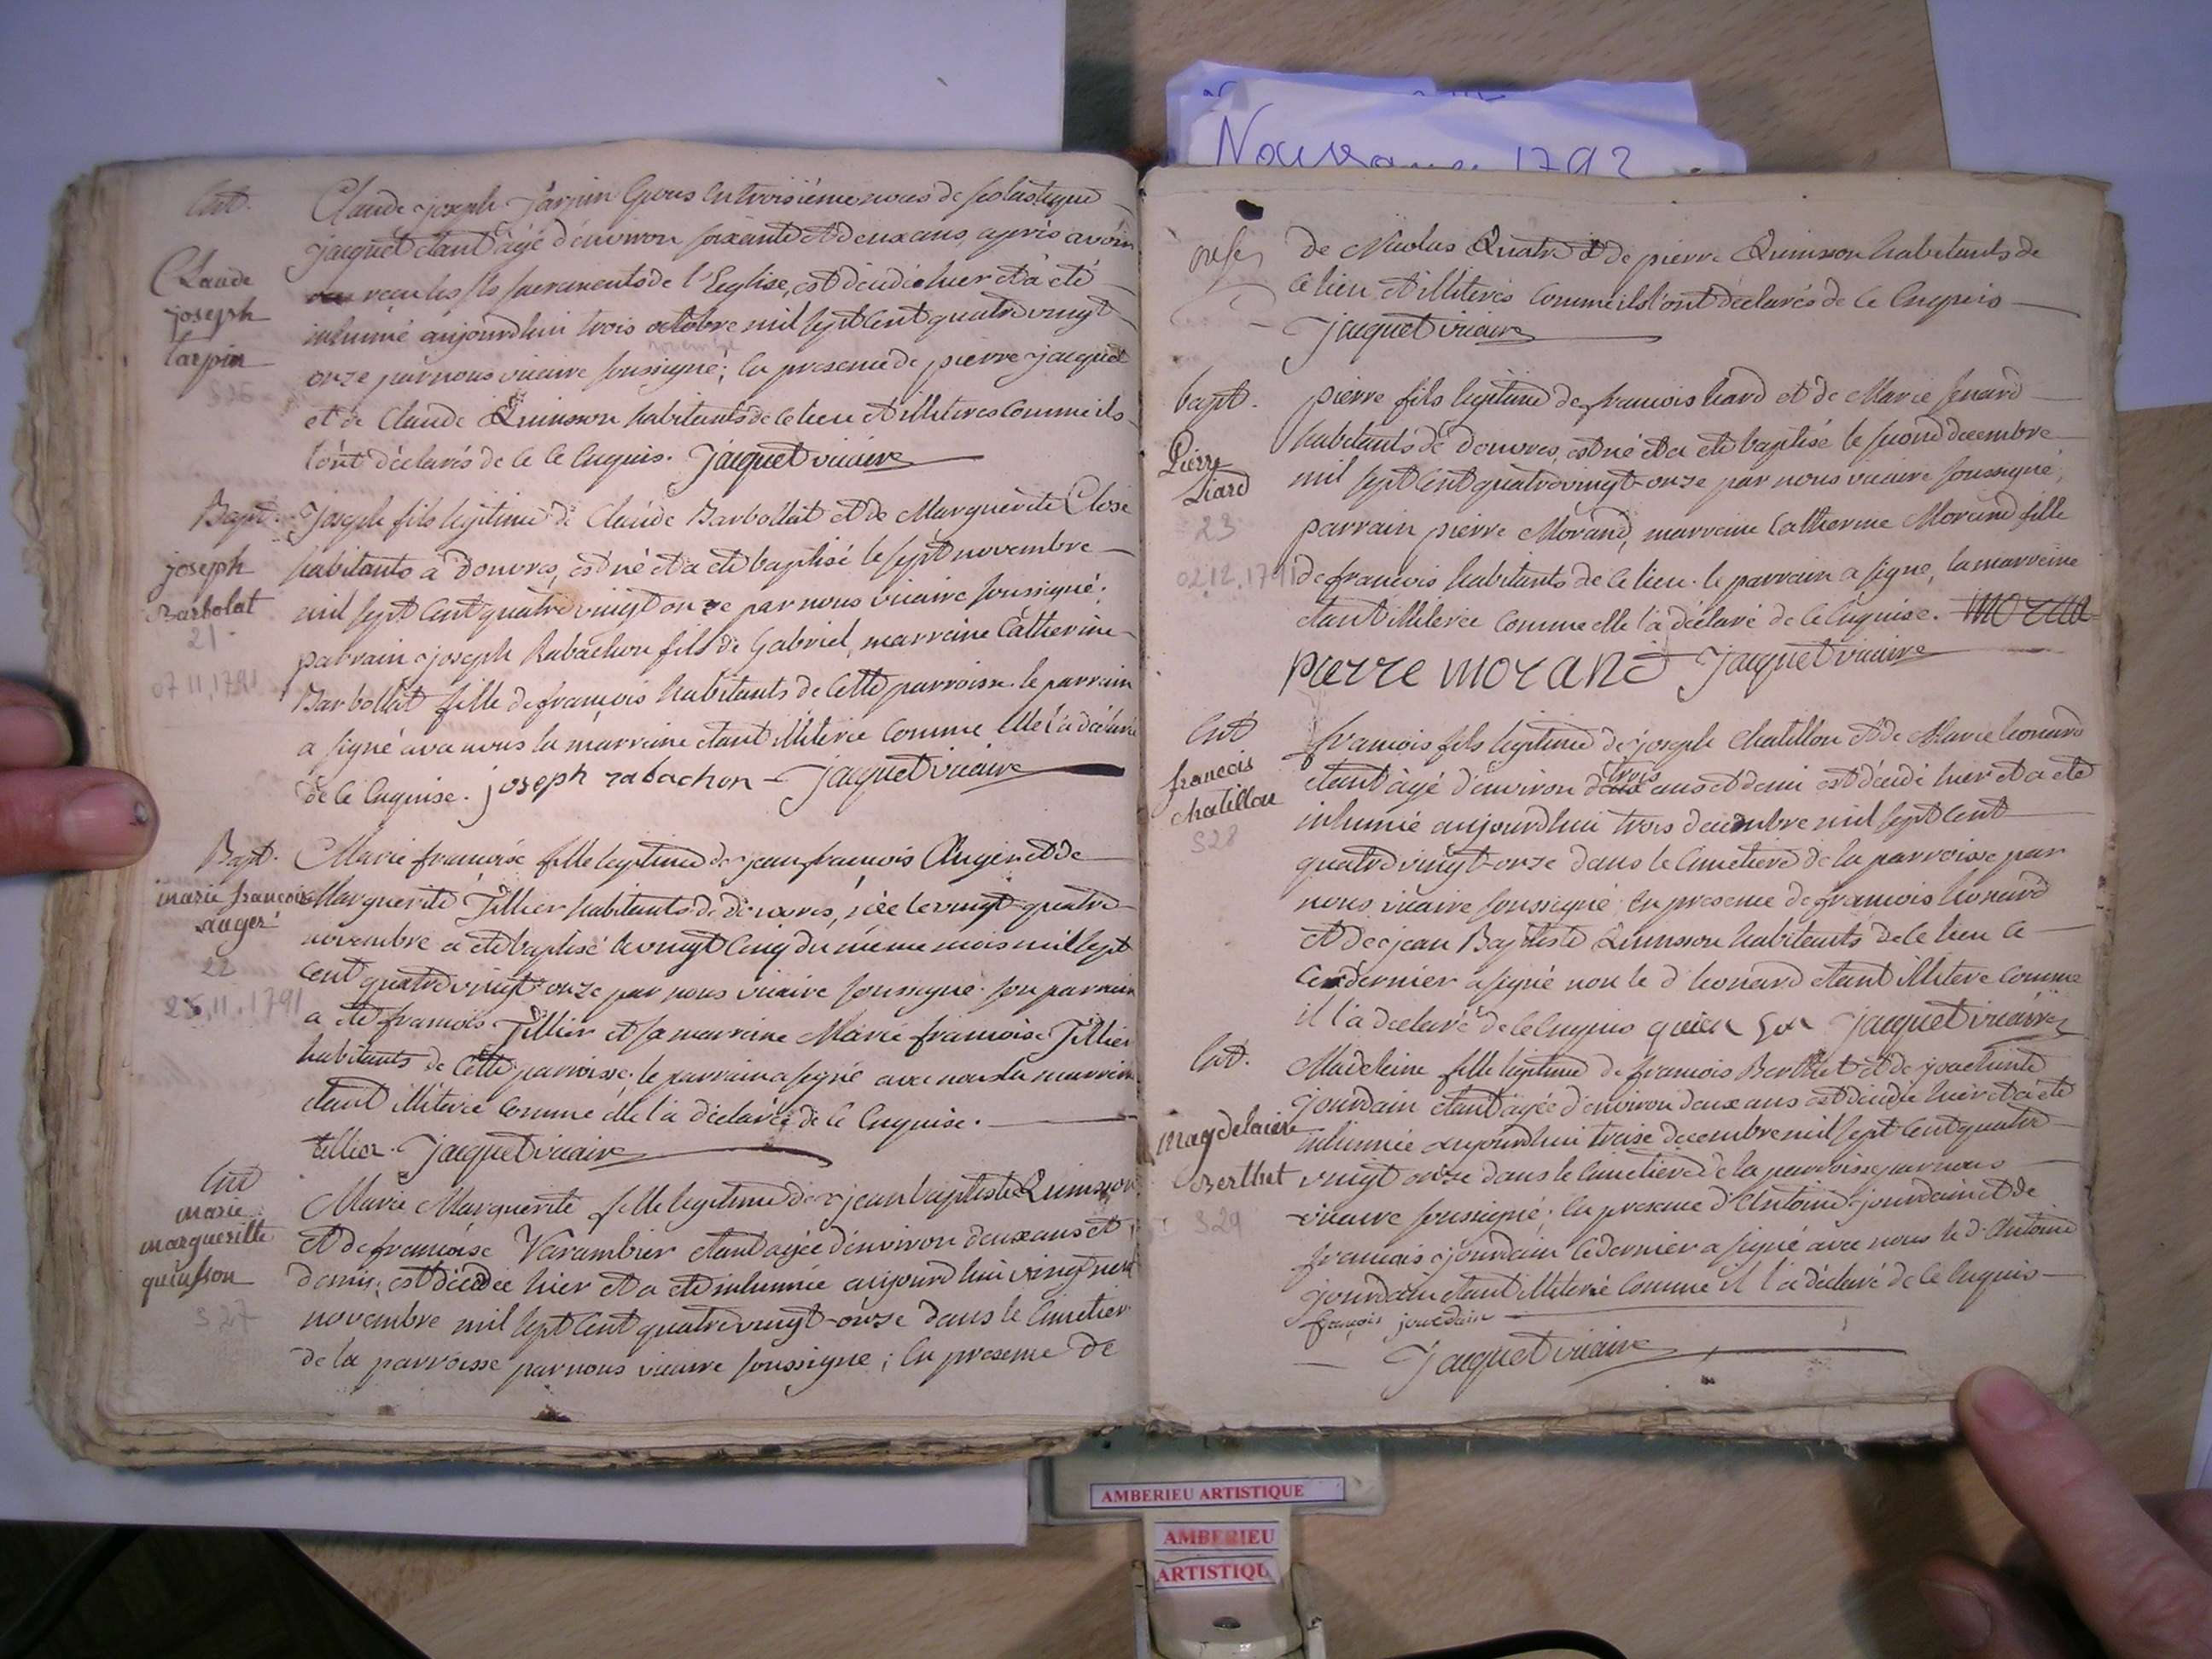 Ent.
Claude
joseph
tarpin
S26
Claude joseph Tarpin Epous en troisième noces de scolastique
jacquet etant âgé d'environ soixante et deux ans, après avoir
reçu les sts sacrements de l'Eglise, est décédé hier et a été
inhumé aujourdhui trois octobre mil sept cent quatre vingt
novembre
onze par nous vicaire soussigné; en presence de pierre jacquet
et de Claude Quinson habitants de ce lieu et illiteres comme ils
l'ont déclarés de ce enquis. Jacquet vicaire
Bapt.
joseph
Barbolat
21
07.11.1791
Joseph fils legitime de Claude Barbollat et de Marguerite Close
habitants a douvres, est né et a eté baptisé le sept novembre
mil sept cent quatre vingt onze par nous vicaire soussigné;
parrain joseph Rabachon fils de Gabriel, marreine Catherine
Barbollat fille de françois habitants de cette parroisse. le parrain
a signé avec nous la marreine etant illiterée comme elle l'a déclaré
de ce enquise. joseph rabachon - Jacquet vicaire
Bapt.
marie françoise
auger
22
25.11.1791
Marie françoise fille legitime de jean françois Auger et de
Marguerite Tillier habitants de douvres, née le vingt quatre
novembre a eté baptisé le vingt cinq du même mois mil sept
cent quatre vingt onze par nous vicaire soussigné. son parrain
a eté francois Tillier et sa marreine Marie francoise Tillier
habitants de cette parroisse. le parrain a signé avec nous la marreine
etant illiterée comme elle l'a déclarée de ce enquise.
tillier. Jacquet vicaire
Ent
marie
margueritte
quinsson
S27
Marie Marguerite fille legitime de jean baptiste Quinson
et de françoise Varambier etant agée d'environ deux ans et
demy, est décédée hier et a eté inhumée aujourd hui vingt neuf
novembre mil sept cent quatre vingt-onze dans le cimetier
de la parroisse par nous vicaire soussigné; en presence de
Nouveau 1792
de Nicolas Quatre et de pierre Quinson habitants de
ce lieu et illiterés comme ils l'ont déclarés de ce enquis
Jacquet vicaire
bapt.
Pierre
Liard
23
02.12.1791
pierre fils legitime de francois liard et de Marie senard
habitants de douvres, est né et a eté baptisé le second decembre
mil sept cent quatre vingt-onze par nous vicaire soussigné;
parrain pierre Morand, marreine Catherine Morand fille
de françois habitants de ce lieu. le parrain a signé, la marreine
etant illiterée comme elle l'a déclaré de ce enquise.
pierre morand Jacquet vicaire
Ent
francois
chatillon
S28
françois fils legitime de joseph Chatillon et de Marie leonard
trois
etant âgé d'environ deux ans et demi est décédé hier et a eté
inhumé aujourdhui trois decembre mil sept cent
quatre vingt-onze dans le cimetiere de la parroisse par
nous vicaire soussigné; en presence de francois leonard
et de jean Baptiste Quinsson habitants de ce lieu ce
dernier a signé non le d leonard etant illiteré comme
il l'a declaré de ce enquis quinson Jacquet vicaire
Ent.
magdelaine
Berthet
S29
Madeleine fille legitime de francois Berthet et de joachime
jourdain etant agée d'environ deux ans est décédée hier et a eté
inhumée aujourdhui treise decembre mil sept cent quatre
vingt onze dans le cimetiere de la parroisse par nous
vicaire soussigné; en presence d'Antoine jourdain et de
francois jourdain ce dernier a signé avec nous le d. Antoine
jourdain etant illiteré comme il l'a déclaré de ce enquis
françois jourdain
Jacquet vicaire
AMBERIEU ARTISTIQUE
AMBERIEU
ARTISTIQU